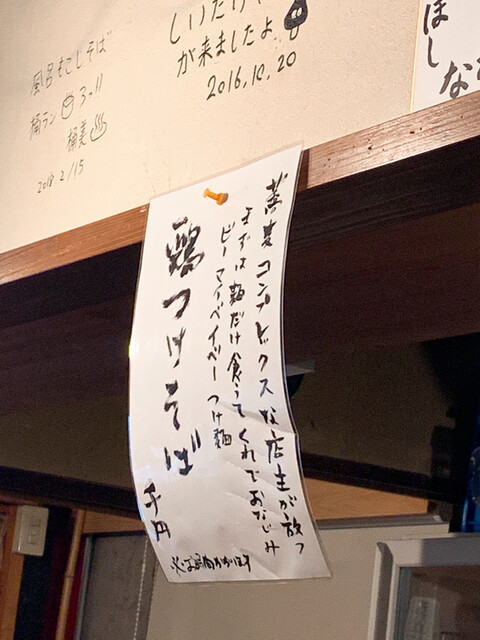 風呂もごしそば
桶ラン 3つ!!
桶美♨
2018 2/15
しいたけ
が来ましたよ。
2016.10.20
ほし
な
蕎麦コンプレックスな店主が放つ
まずは麺だけ食ってくれでおなじみ
ビーマイベイベーつけ麺
鶏つけそば
千円